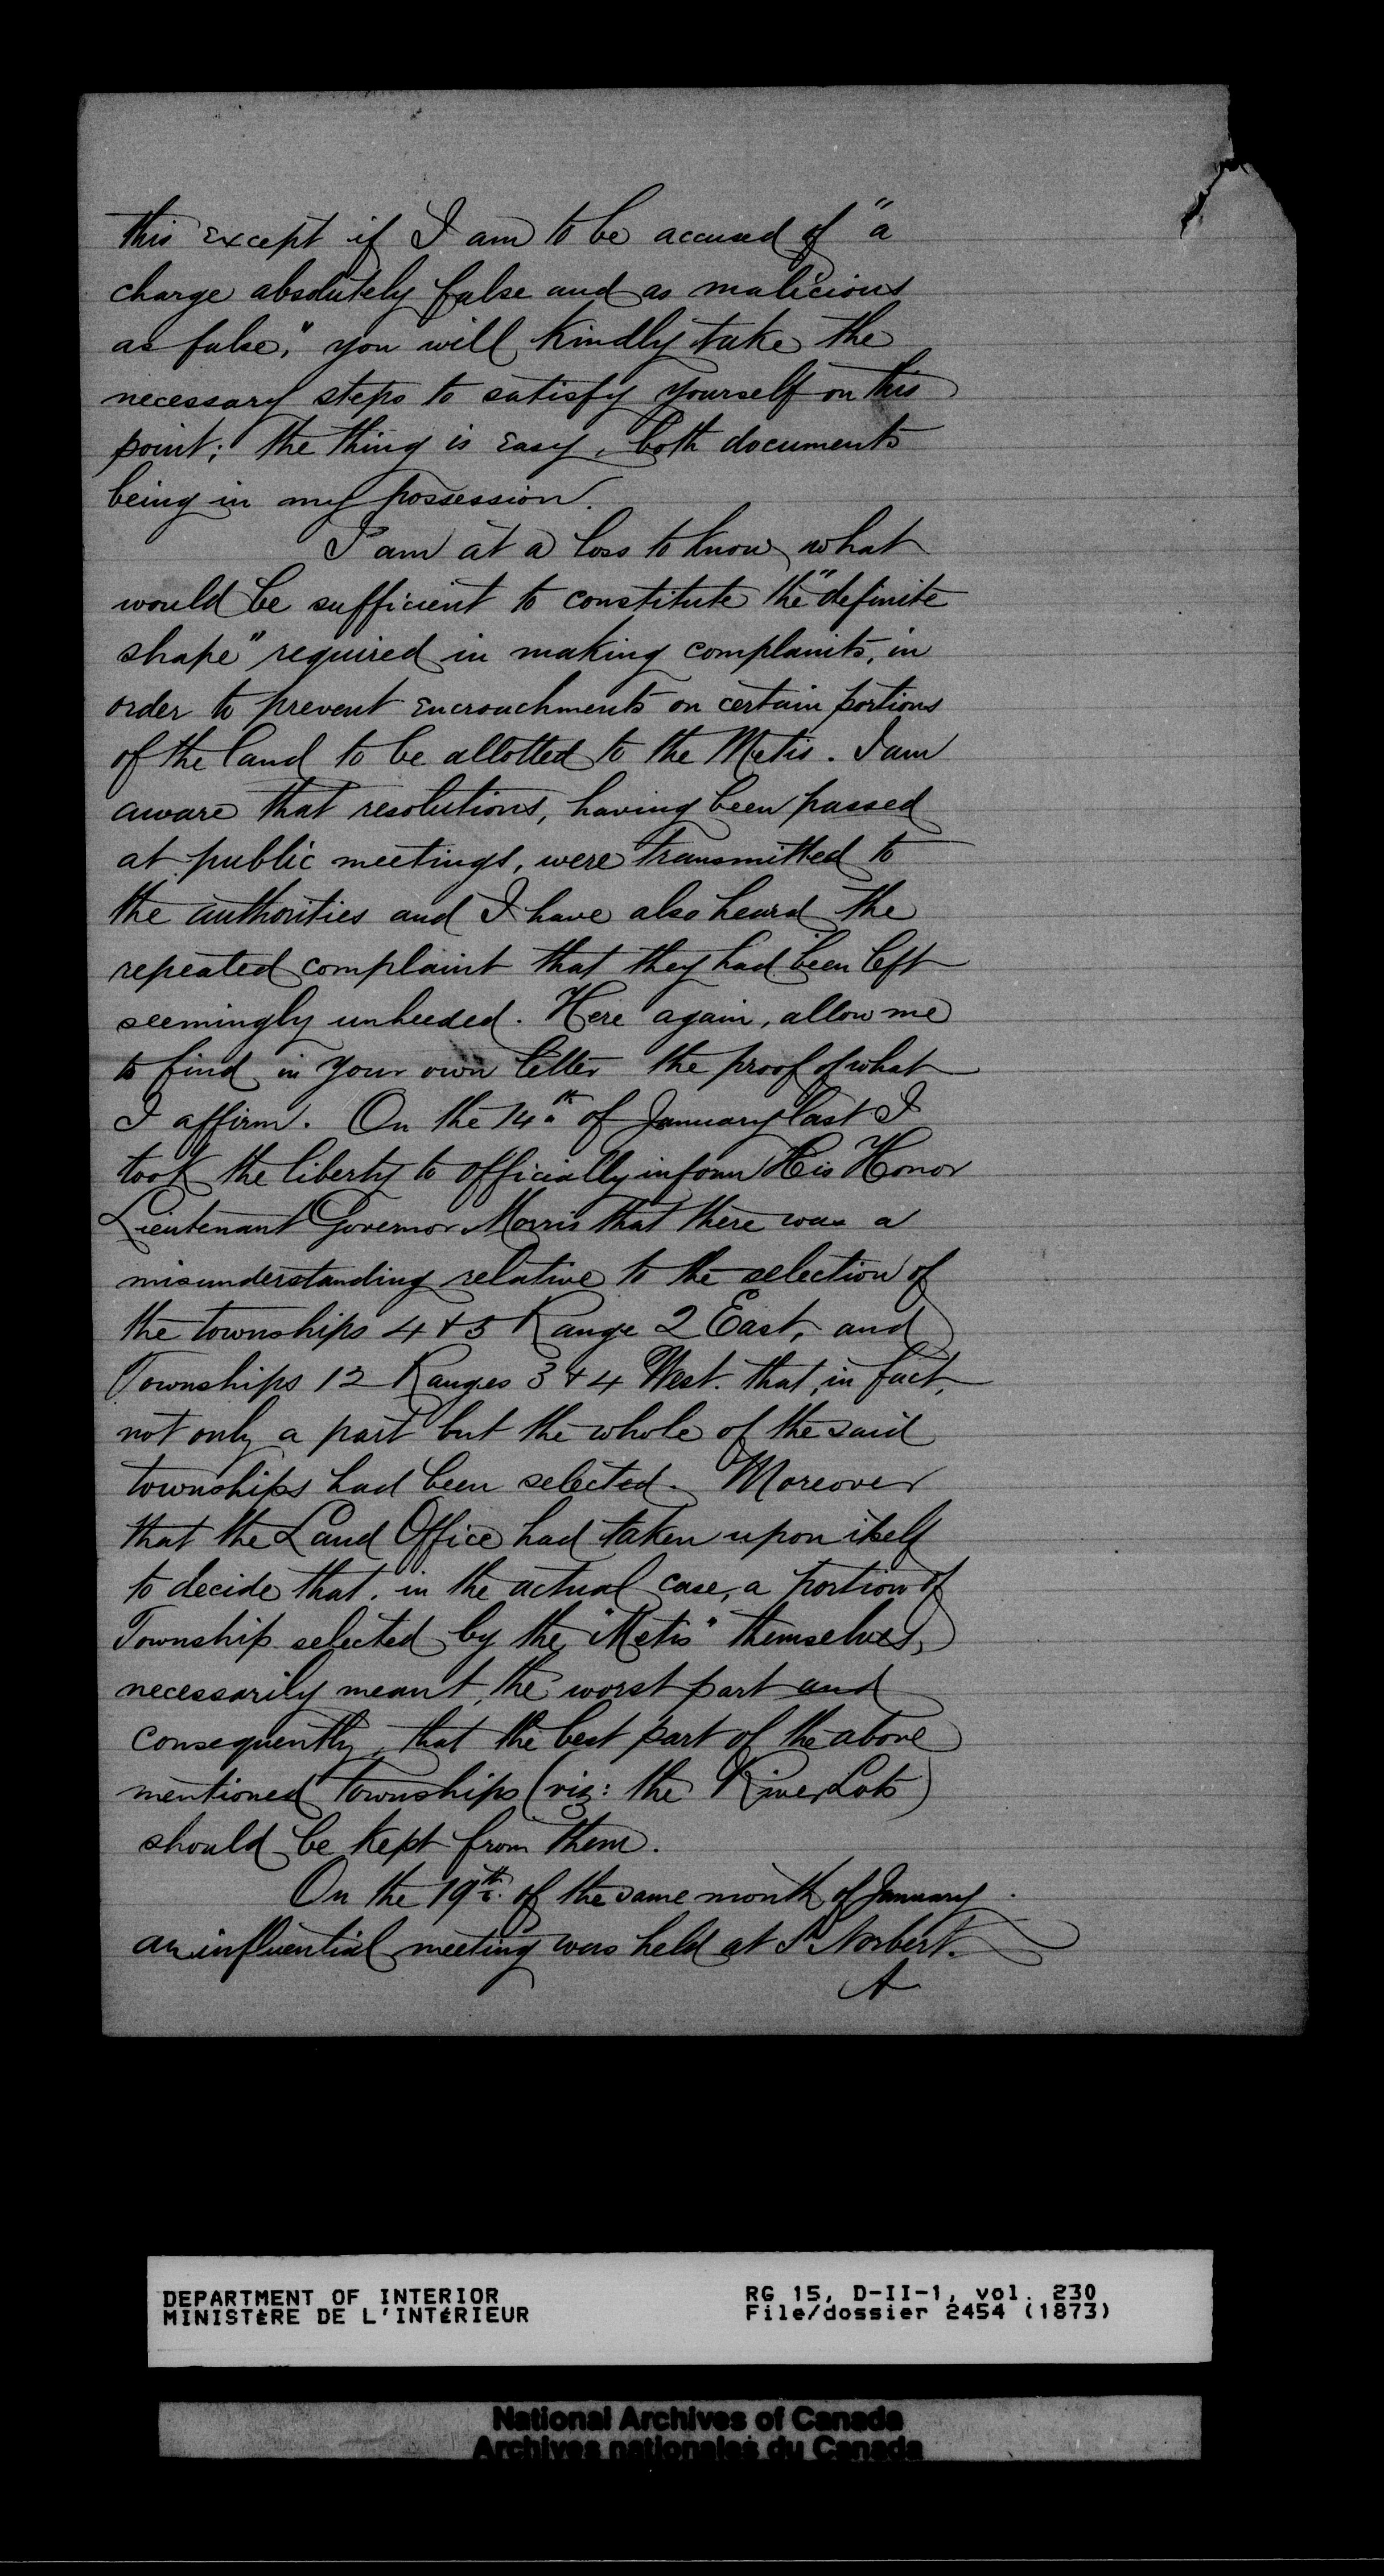 this except if I am to be accused of "a
charge absolutely false and as malicious
as false," you will kindly take the
necessary steps to satisfy yourself on this
point; the thing is easy, both documents
being in my possession.
I am at a loss to know what
would be sufficient to constitute the "definite
shape" required in making complaints, in
order to prevent encroachments on certain portions
of the land to be allotted to the Metis. I am
aware that resolutions, having been passed
at public meetings, were transmitted to
the authorities and I have also heard the
repeated complaint that they had been left
seemingly unheeded. Here again, allow me
to find in your own letter the proof of what
I affirm. On the 14th of January last I
took the liberty to officially inform His Honor
Lieutenant Governor Morris that there was a
misunderstanding relative to the selection of
the townships 4 & 5 Range 2 East, and
Townships 12 Ranges 3 & 4 West. that, in fact,
not only a part but the whole of the said
townships had been selected. Moreover
that the Land Office had taken upon itself
to decide that, in the actual case, a portion of
Township selected by the "Metis" themselves,
necessarily meant, the worst part and
consequently, that the best part of the above
mentioned townships (viz: the River Lots)
should be kept from them.
On the 19th of the same month of January
an influential meeting was held at St Norbert.
A
DEPARTMENT OF INTERIOR RG 15, D-II-1, vol. 230
MINISTÈRE DE L'INTÉRIEUR File/dossier 2454 (1873)
National Archives of Canada
Archives nationales du Canada